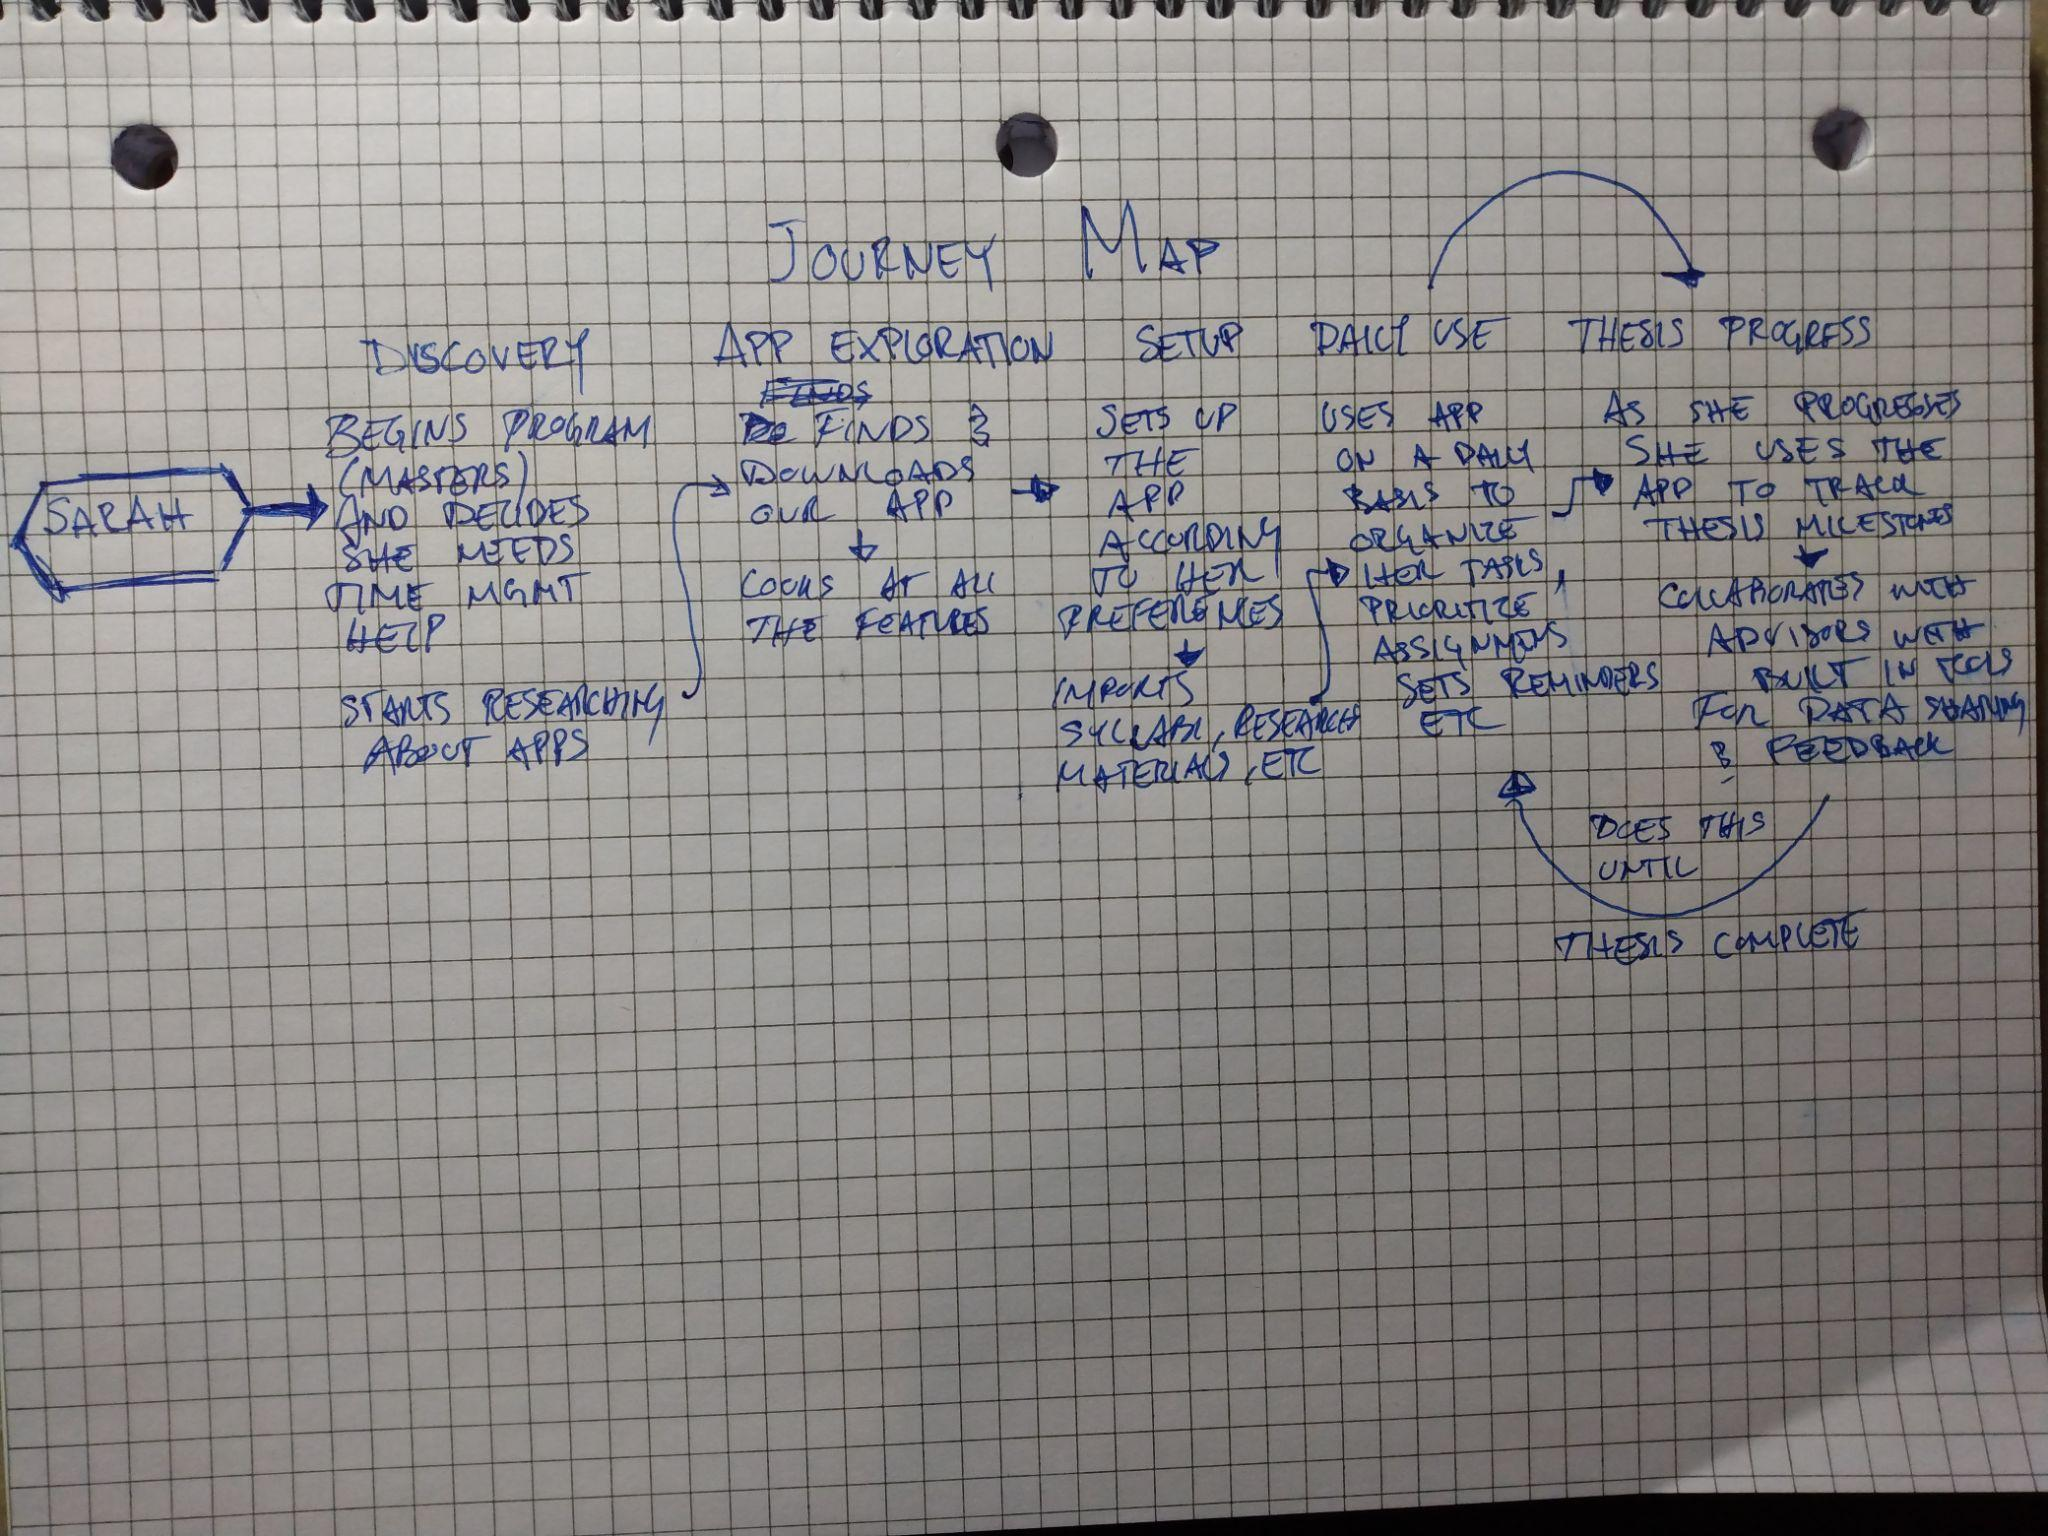 JOURNEY MAP
SARAH
DISCOVERY
BEGINS PROGRAM
(MASTERS)
AND DECIDES
SHE NEEDS
TIME MGMT
HELP
STARTS RESEARCHING
ABOUT APPS
APP EXPLORATION
FINDS &
DOWNLOADS
OUR APP
LOOKS AT ALL
THE FEATURES
SETUP
SETS UP
THE
APP
ACCORDING
TO HER
PREFERENCES
IMPORTS
SYLLABI, RESEARCH
MATERIALS, ETC
DAILY USE
USES APP
ON A DAILY
BASIS TO
ORGANIZE
HER TASKS,
PRIORITIZE
ASSIGNMENTS
SETS REMINDERS
ETC
THESIS PROGRESS
AS SHE PROGRESSES
SHE USES THE
APP TO TRACK
THESIS MILESTONES
COLLABORATES WITH
ADVISORS WITH
BUILT IN TOOLS
FOR DATA SHARING
& FEEDBACK
DOES THIS
UNTIL
THESIS COMPLETE